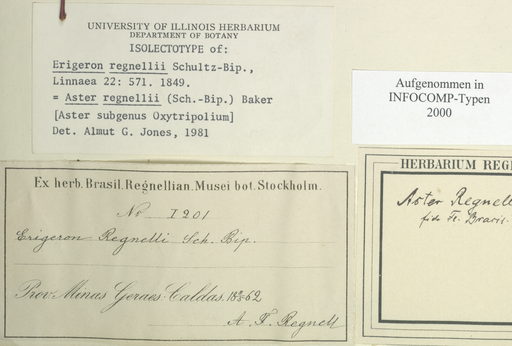 UNIVERSITY OF ILLINOIS HERBARIUM
DEPARTMENT OF BOTANY
ISOLECTOTYPE of:
Erigeron regnellii Schultz-Bip.,
Linnaea 22: 571. 1849.
= Aster regnellii (Sch.-Bip.) Baker
[Aster subgenus Oxytripolium]
Det. Almut G. Jones, 1981
Aufgenommen in
INFOCOMP-Typen
2000
Ex herb. Brasil. Regnellian. Musei bot. Stockholm.
No I 201
Erigeron Regnelli Sch. Bip.
Prov. Minas Geraes: Caldas.
A. F. Regnell
HERBARIUM REG
Aster Regnell
Fl. Brasil.